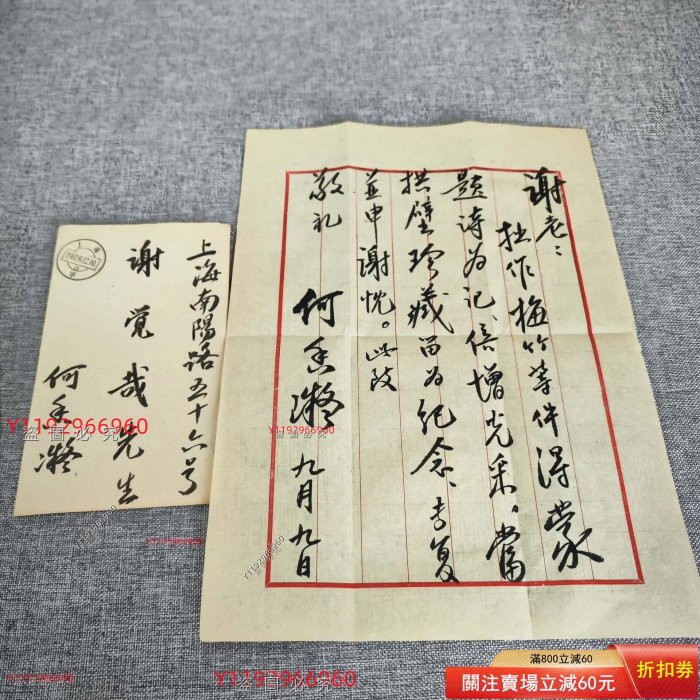 谢老:
拙作梅竹等件得蒙
题诗为记、倍增光采，当
拱璧珍藏留为纪念、专复
並申谢忱。此致
敬礼
何香凝 九月九日
上海南陽路五十六号
谢觉哉先生
何香凝
上海
Y1192966960
盗圖必究
Y1192966960
盗圖必究
Y1192966960
Y1192966960
Y1192966960
滿800立減60
關注賣場立減60元
折扣券